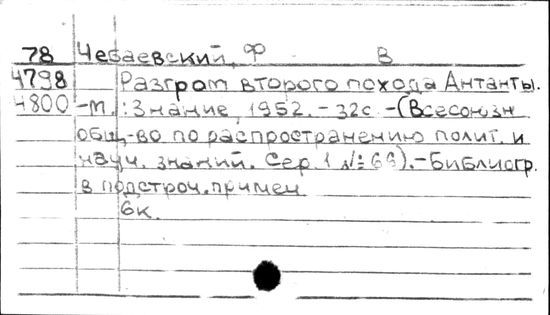 78 Чебаевский, Ф В
4798 Разгром второго похода Антанты.
4800 -М.: Знание, 1952. - 32с - (Всесоюзн
общ-во по распространению полит. и
науч. знаний. Сер. 1 №66). - Библиогр.
в подстроч. примеч
6к.